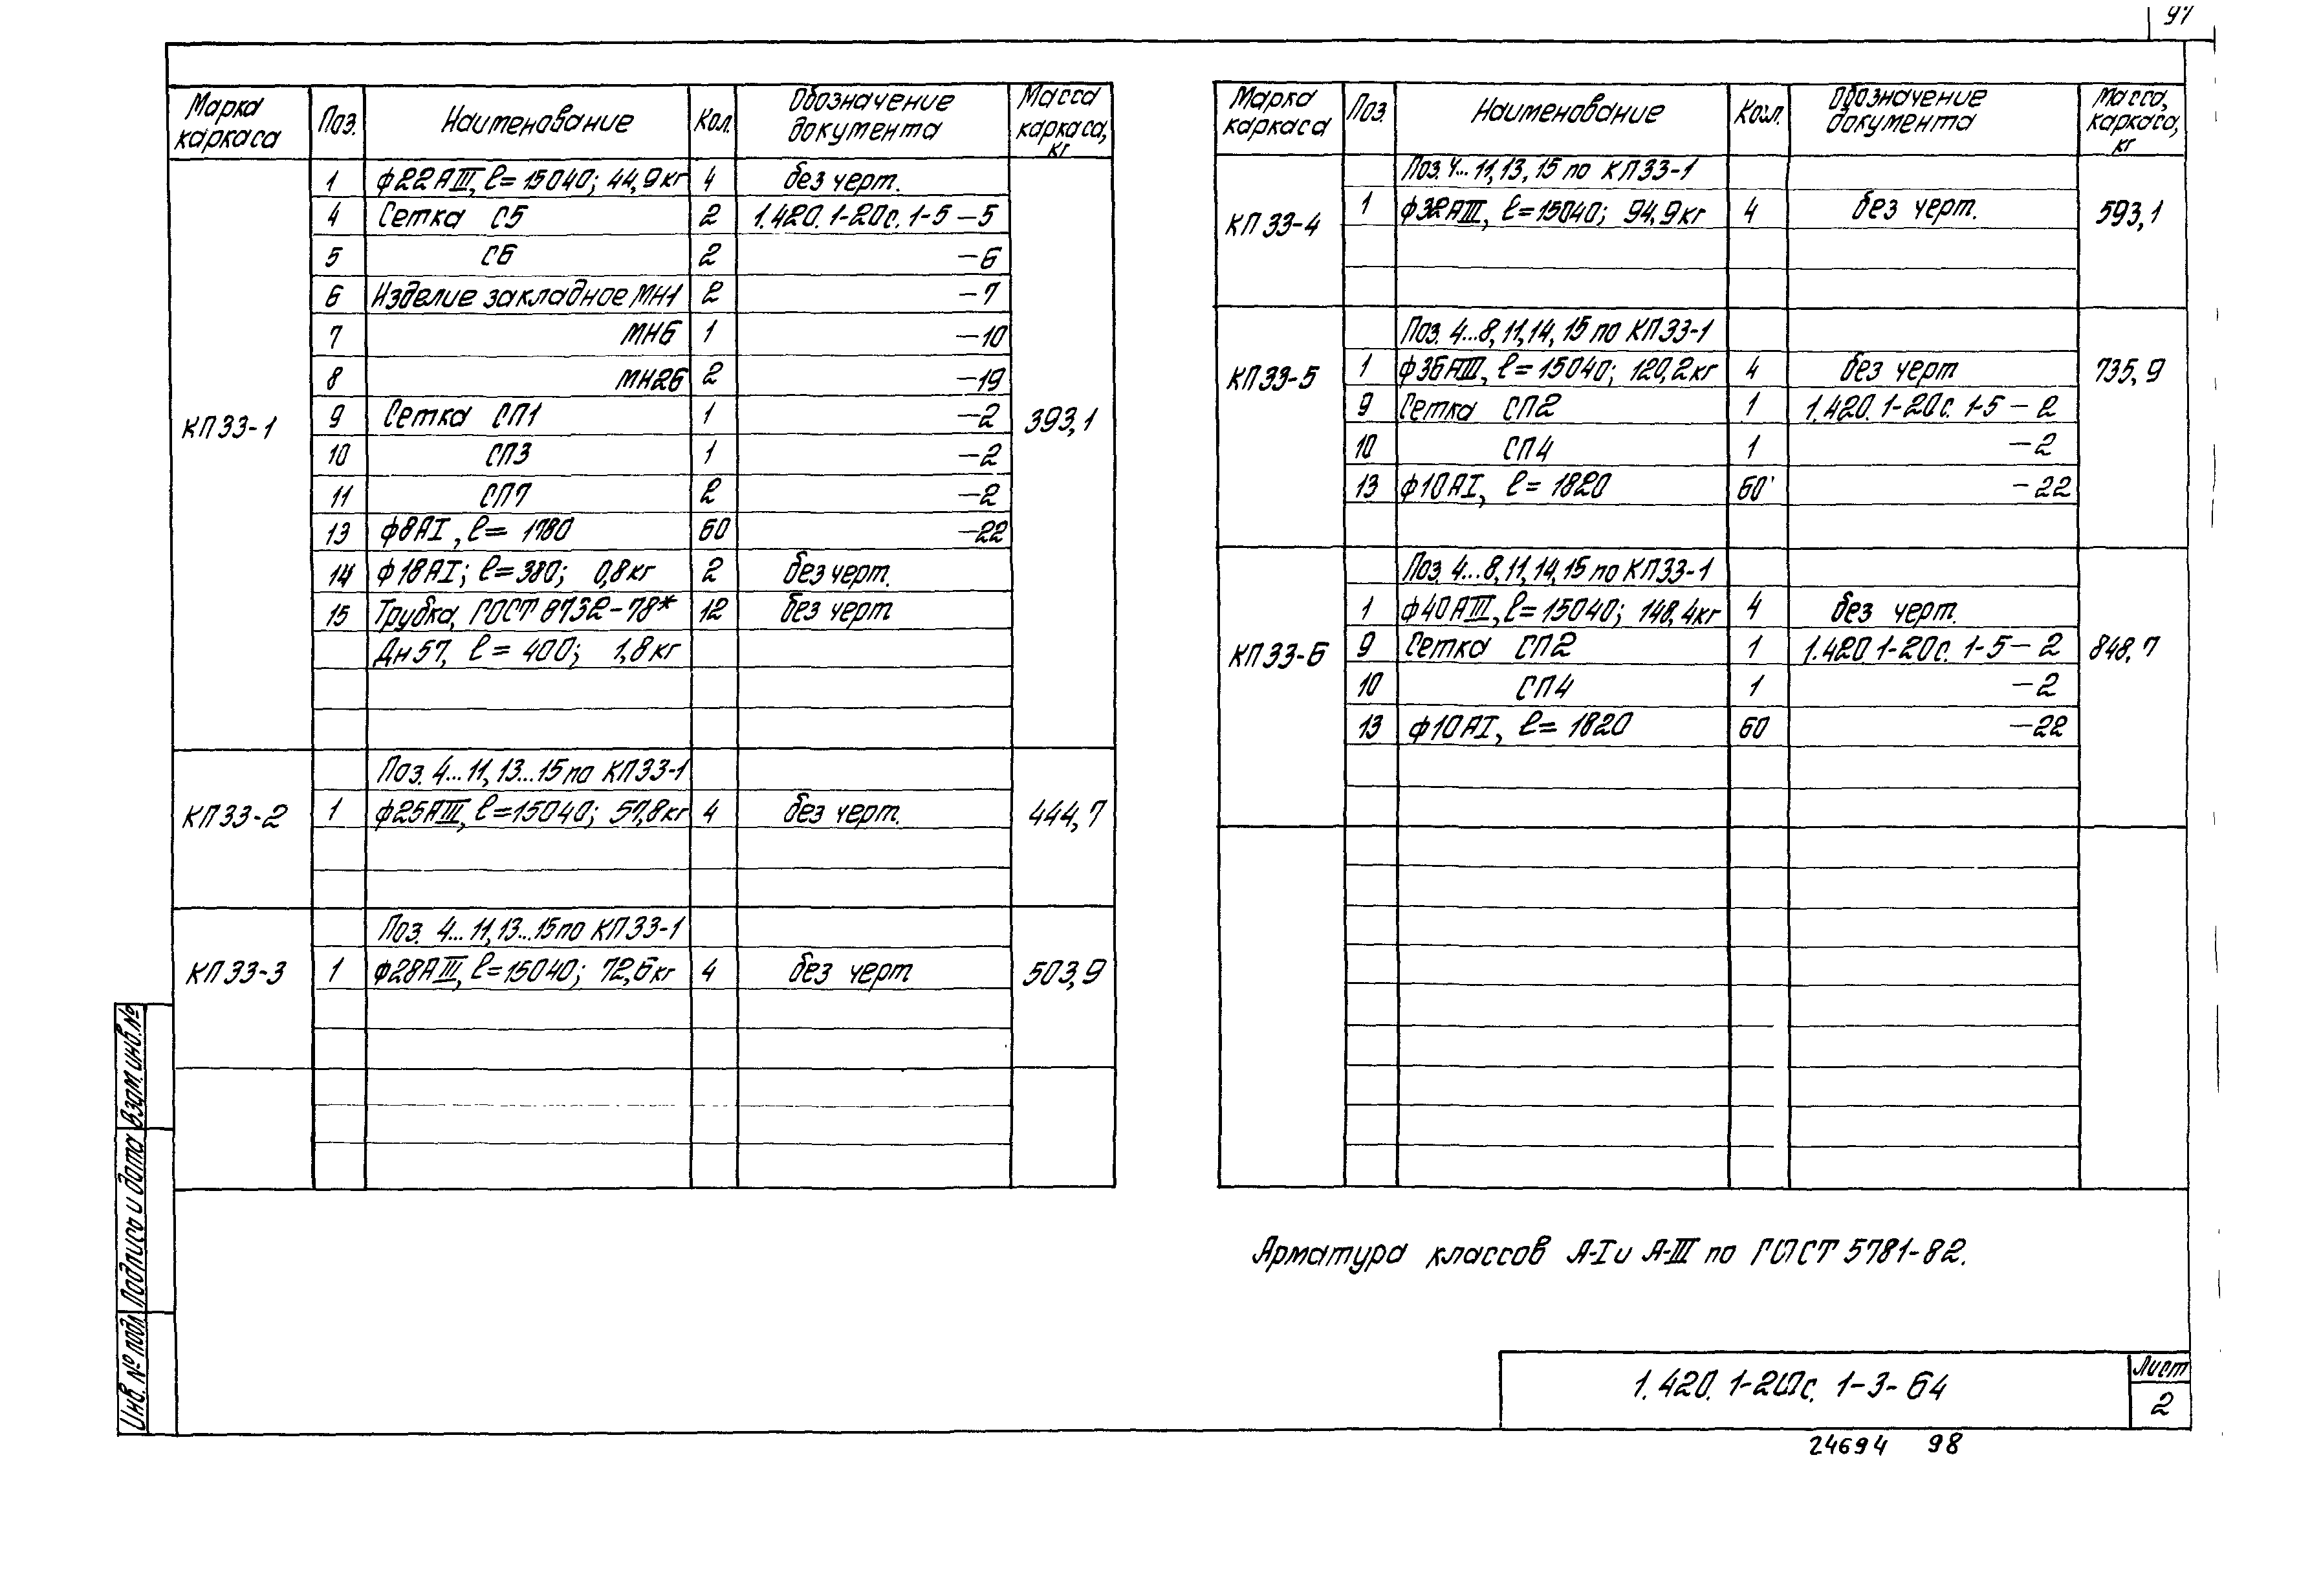 97
Марка каркаса Поз. Наименование Кол. Обозначение документа Масса каркаса, кг
КП33-1 393,1
1 ф22АIII, ℓ=15040; 44,9кг 4 без черт.
4 Сетка С5 2 1.420.1-20с.1-5-5
5 С6 2 -6
6 Изделие закладное МН1 2 -7
7 МН6 1 -10
8 МН26 2 -19
9 Сетка СП1 1 -2
10 СП3 1 -2
11 СП7 2 -2
13 ф8АI, ℓ= 1780 60 -22
14 ф18АI; ℓ=380; 0,8кг 2 без черт.
15 Трубка, ГОСТ 8732-78* 12 без черт
Дн57, ℓ=400; 1,8кг
Поз. 4...11, 13...15 по КП33-1
КП33-2 1 ф25АIII, ℓ=15040; 57,8кг 4 без черт. 444,7
Поз. 4...11, 13...15 по КП33-1
КП33-3 1 ф28АIII, ℓ=15040; 72,6кг 4 без черт 503,9
Марка каркаса Поз. Наименование Кол. Обозначение документа Масса, каркаса, кг
Поз. 4...11, 13, 15 по КП33-1
КП33-4 1 ф32АIII, ℓ=15040; 94,9кг 4 без черт. 593,1
Поз. 4...8, 11, 14, 15 по КП33-1
КП33-5 1 ф36АIII, ℓ=15040; 120,2кг 4 без черт 735,9
9 Сетка СП2 1 1.420.1-20с.1-5-2
10 СП4 1 -2
13 ф10АI, ℓ= 1820 60 -22
Поз. 4...8, 11, 14, 15 по КП33-1
1 ф40АIII, ℓ=15040; 148,4кг 4 без черт.
КП33-6 9 Сетка СП2 1 1.420.1-20с.1-5-2 848,7
10 СП4 1 -2
13 ф10АI, ℓ= 1820 60 -22
Арматура классов А-I и А-III по ГОСТ 5781-82.
1.420.1-20с.1-3-64
Лист
2
24694 98
Взам. инв. №
Подпись и дата
Инв. № подл.